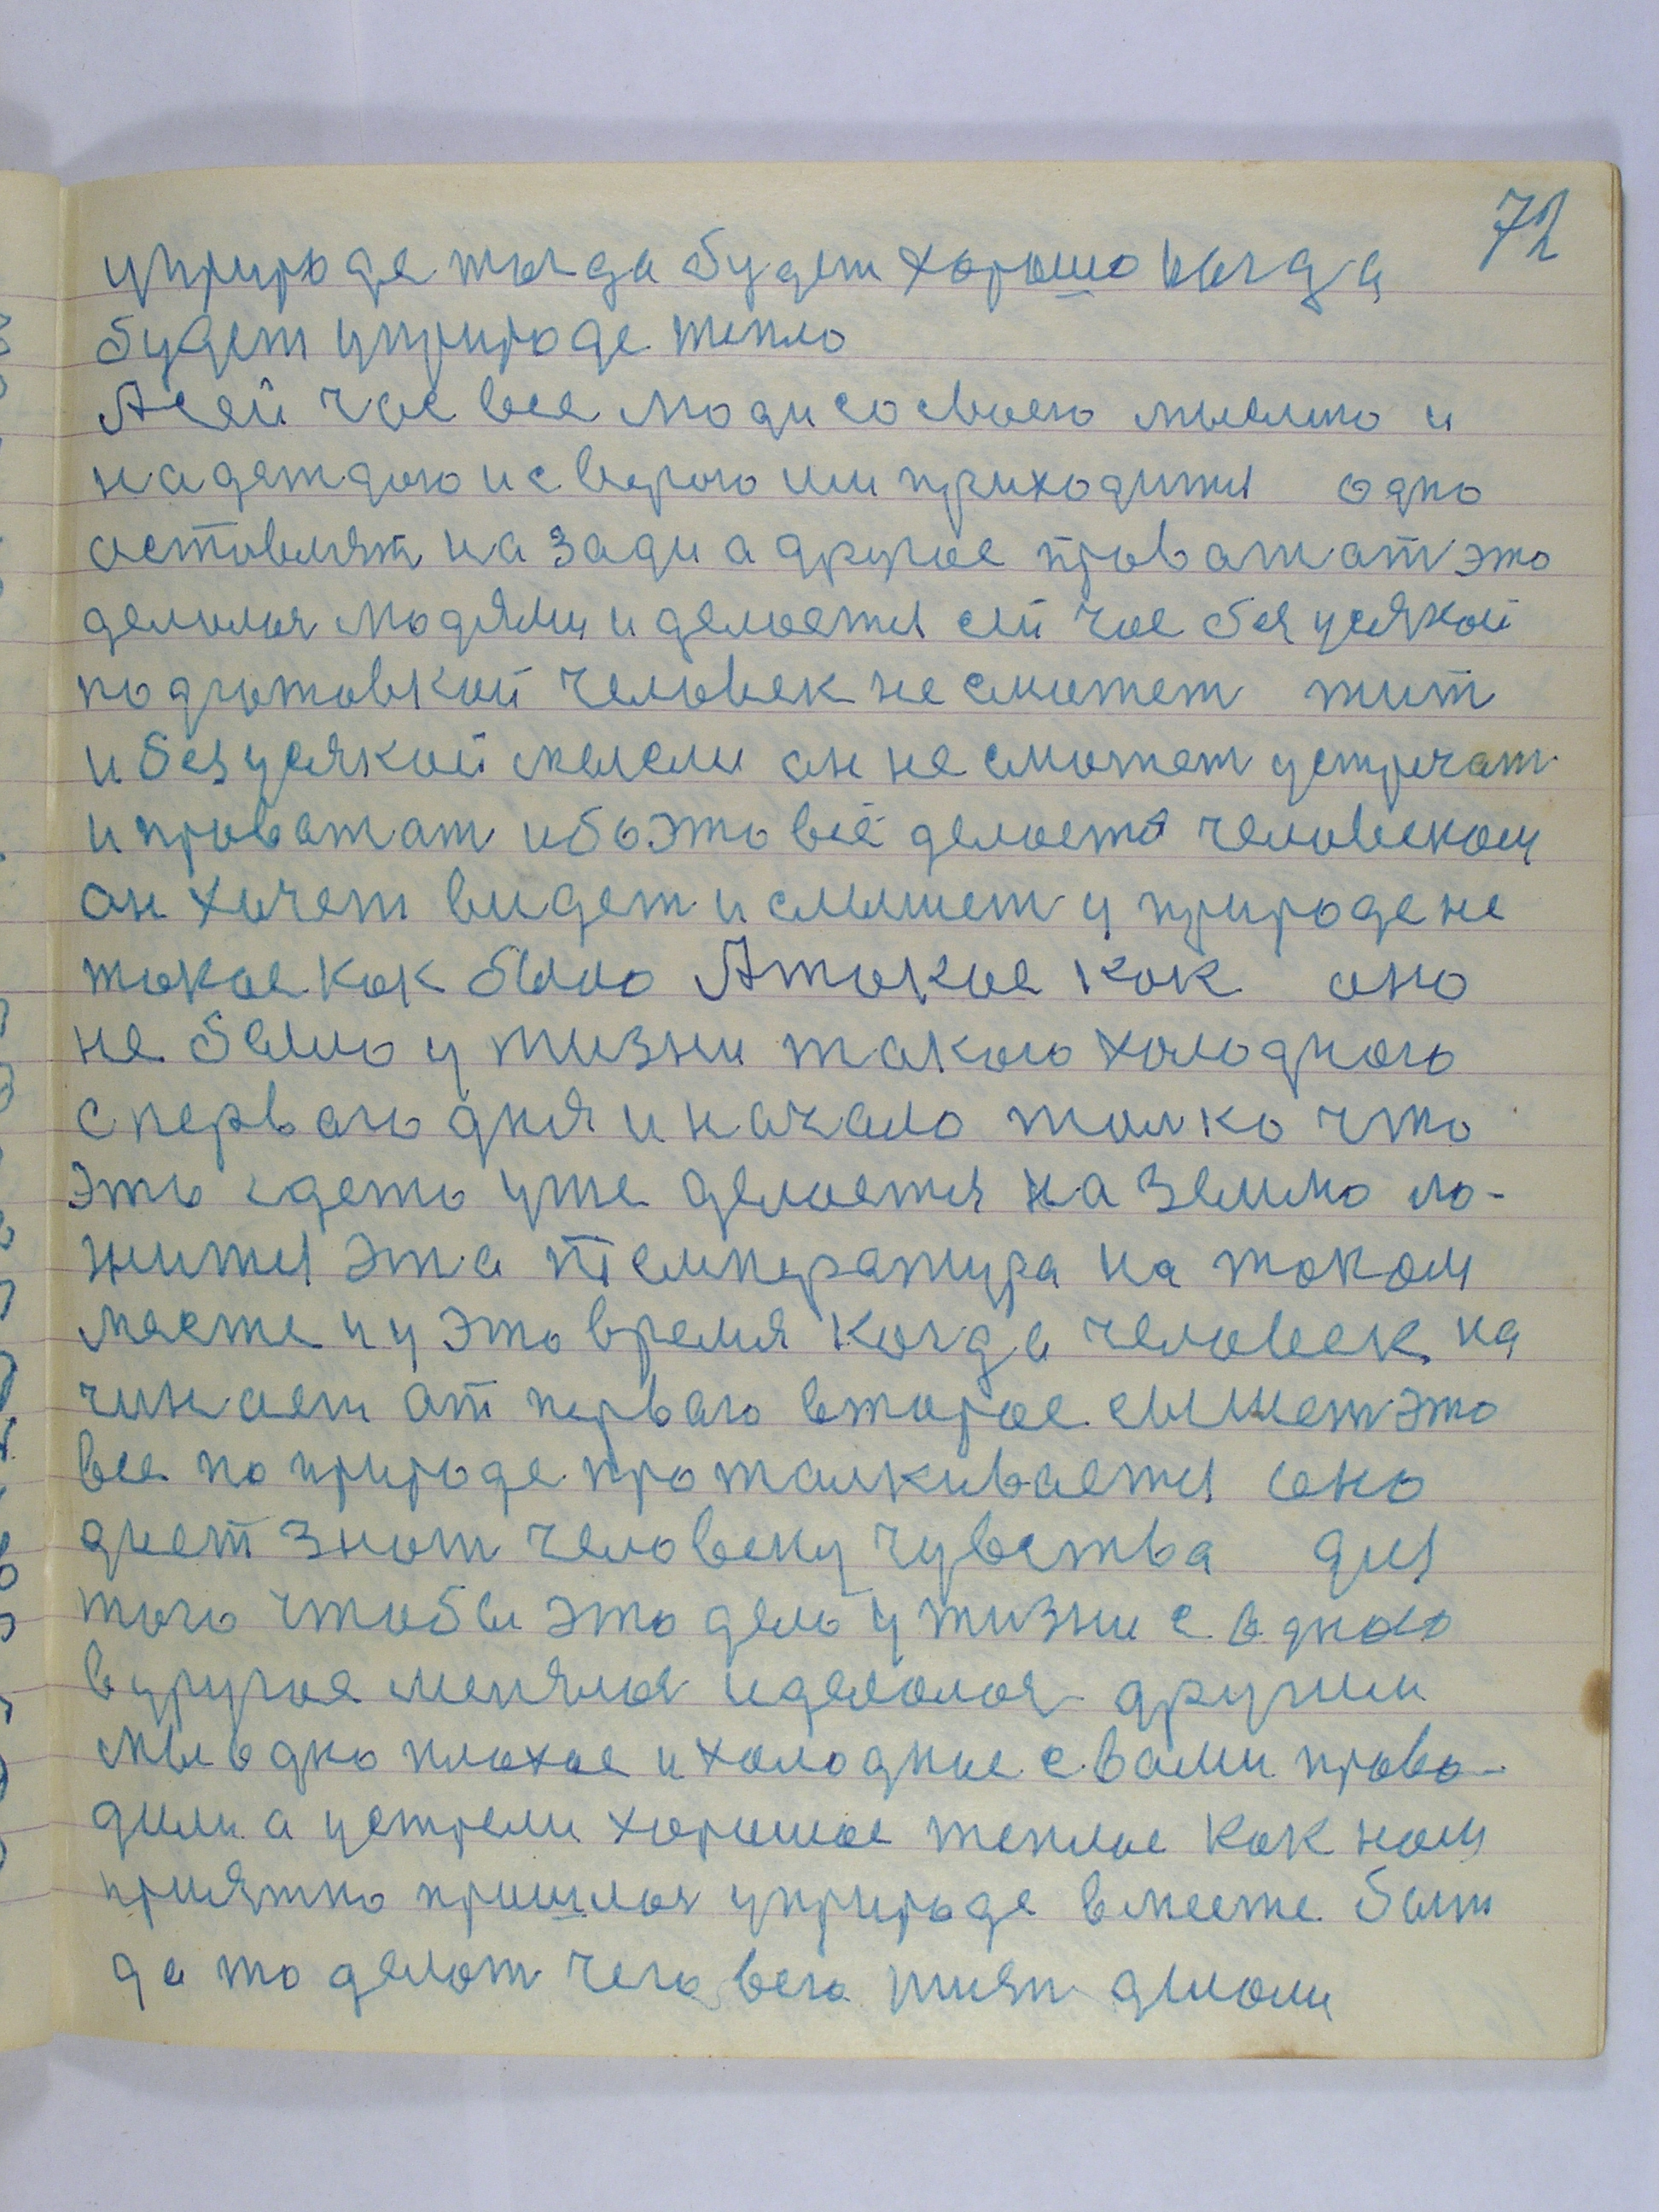 72
уприроде тогда будет хорошо когда
будет уприроде тепло
Асей час все люди со своею мыслю и
надеждою и с верою им приходится одно
оставлят на зади а другое провожат это
делолоя людями и делоется сей час без усякой
подготовкой человек не сможет жит
и без усякой мысли он не сможет устречат
и провожат ибо это всё делоется человеком
он хочет видет и слышет у природе не
токое как было Атокое как оно
не было у жизни такого холодного
с первого дня и начало толко что
это где то уже делоется на землю ло-
жится эта температура на таком
месте и у это время когда человек на
чинает от первого второе слышет это
все по природе проталкивается оно
дает знат человеку чувства для
того чтобы это дело у жизни с одного
в уругое менялоя и делолоя другим
мы одно плохое и холодное с вами прово-
дили а устрели хорошое теплое как ном
приятно пришлоя уприроде вместе быт
да то делот чего всего делом